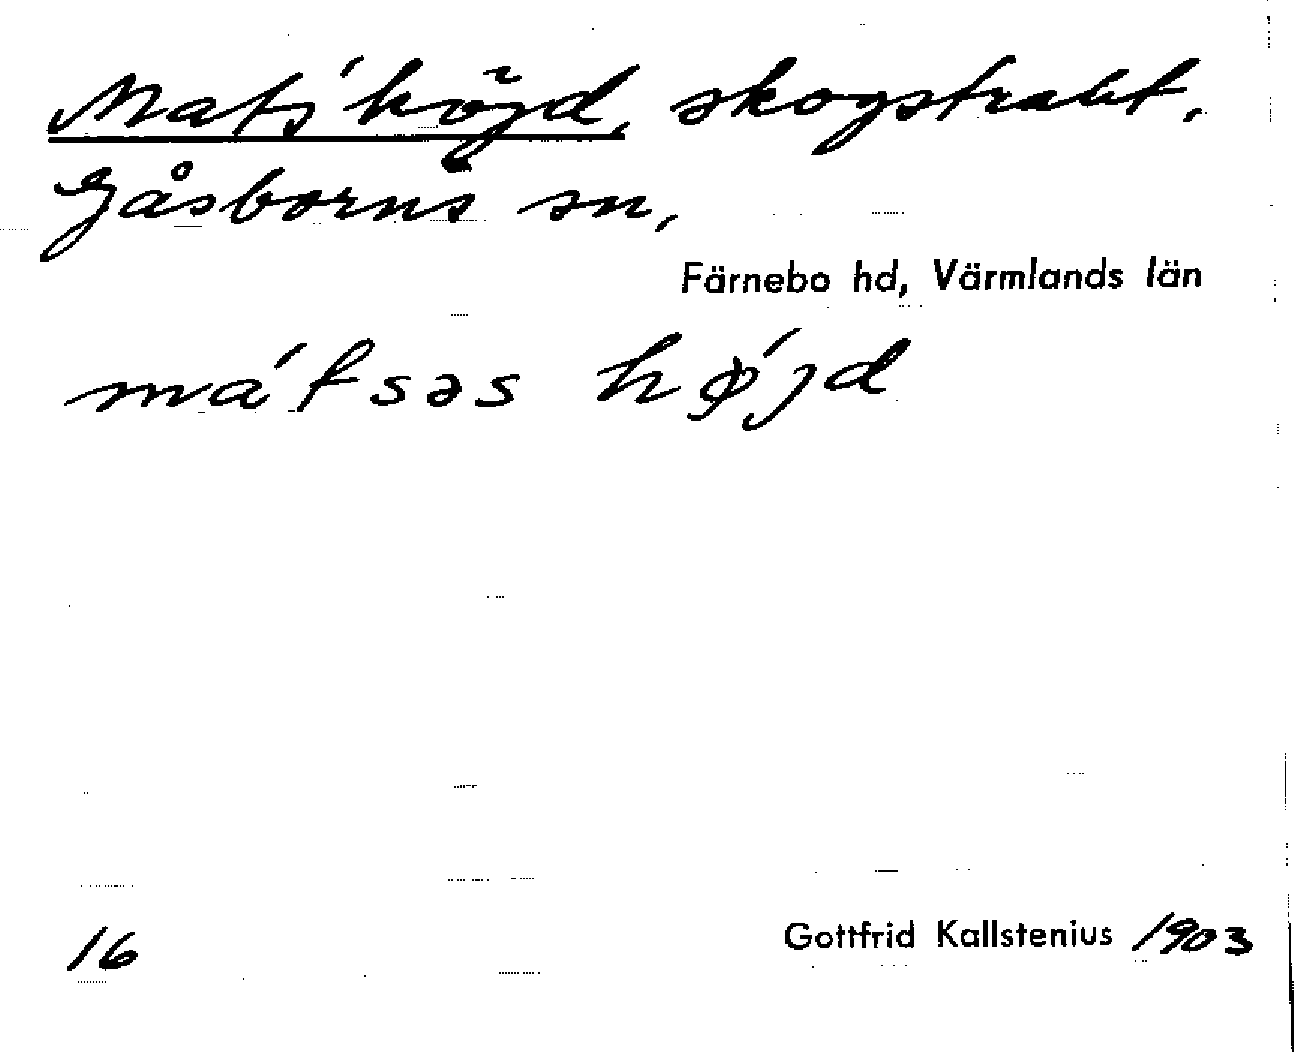 Mats' höjd, skogstrakt,
Gåsborns sn,
Färnebo hd, Värmlands län
má'tsəs hǿjd
16
Gottfrid Kallstenius 1903